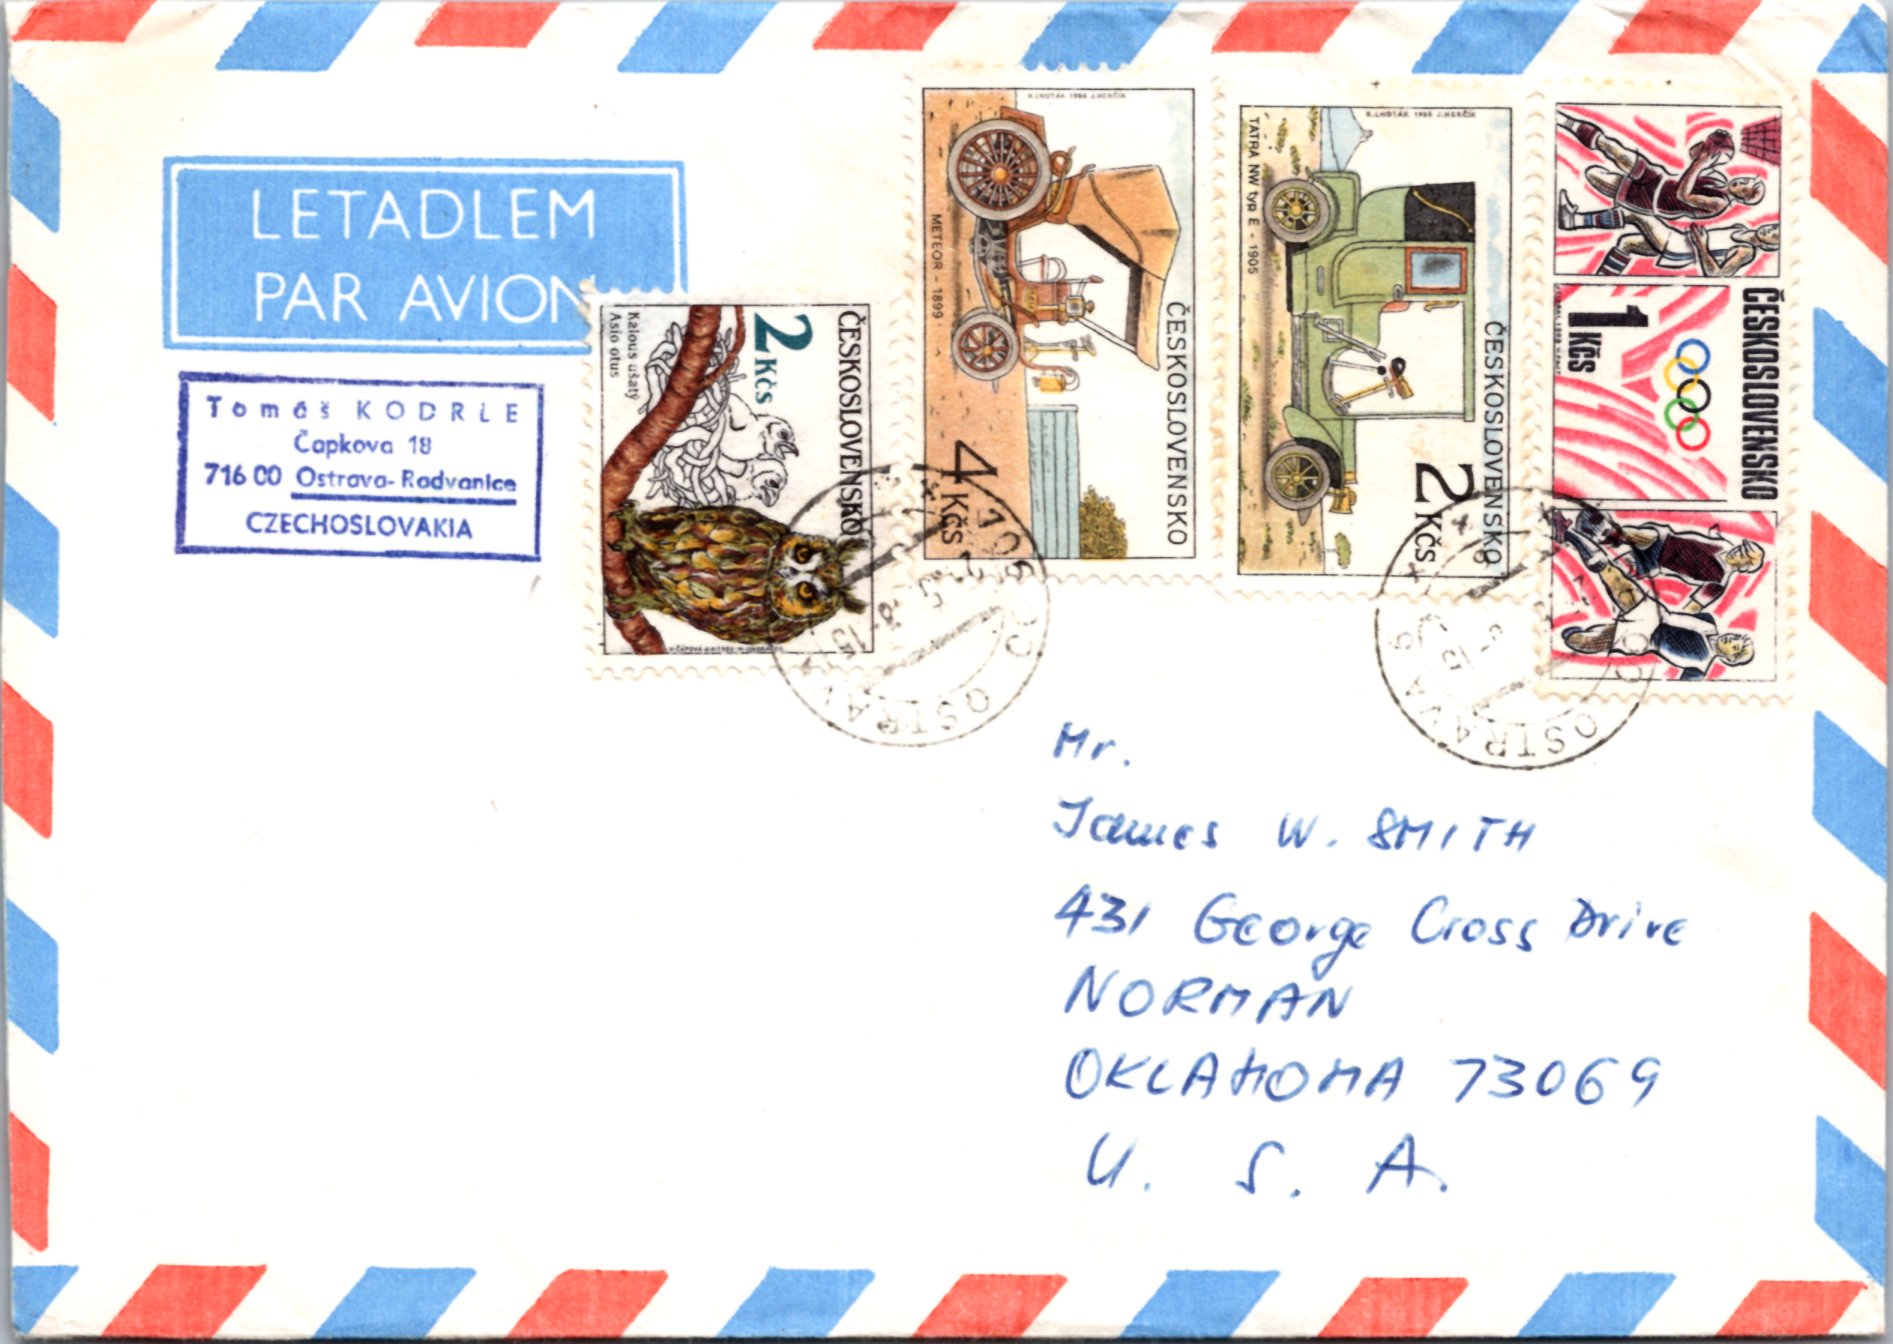 LETADLEM
PAR AVION
Tomáš KODRLE
Čapkova 18
716 00 Ostrava-Radvanice
CZECHOSLOVAKIA
ČESKOSLOVENSKO
2 Kčs
Kalous ušatý
Asio otus
K.LHOTÁK 1988 J.HERČÍK
ČESKOSLOVENSKO
METEOR - 1899
4 Kčs
K.LHOTÁK 1988 J.HERČÍK
ČESKOSLOVENSKO
TATRA NW typ E - 1905
2 Kčs
ČESKOSLOVENSKO
1 Kčs
OSTRAVA
OSTRAVA 6
Mr.
James W. SMITH
431 George Cross Drive
NORMAN
OKLAHOMA 73069
U. S. A.